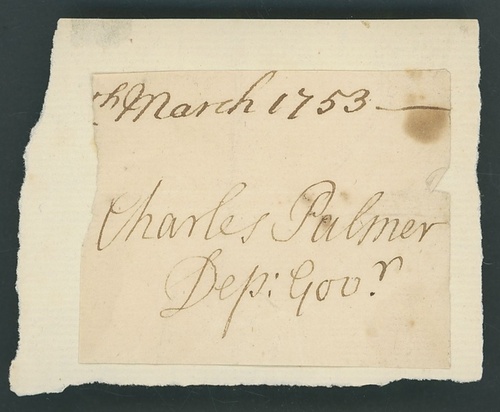 th March 1753
Charles Palmer
Dep: Govr